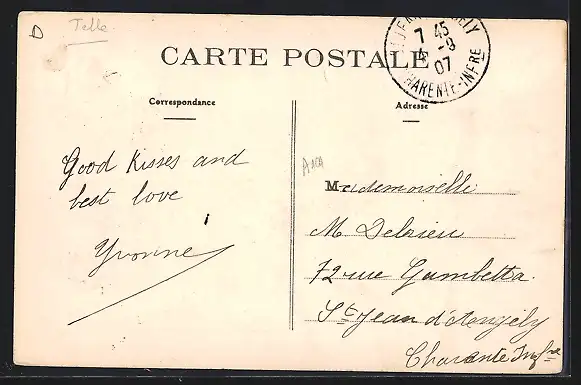 D
Telle
CARTE POSTALE
7 45
4 -9
07
CHARENTE-INFRE
Correspondance
Adresse
Good Kisses and
best love
Yvonne
Mademoiselle
M Delrieu
72 rue Gambetta
St Jean d'Angély
Charente Infre